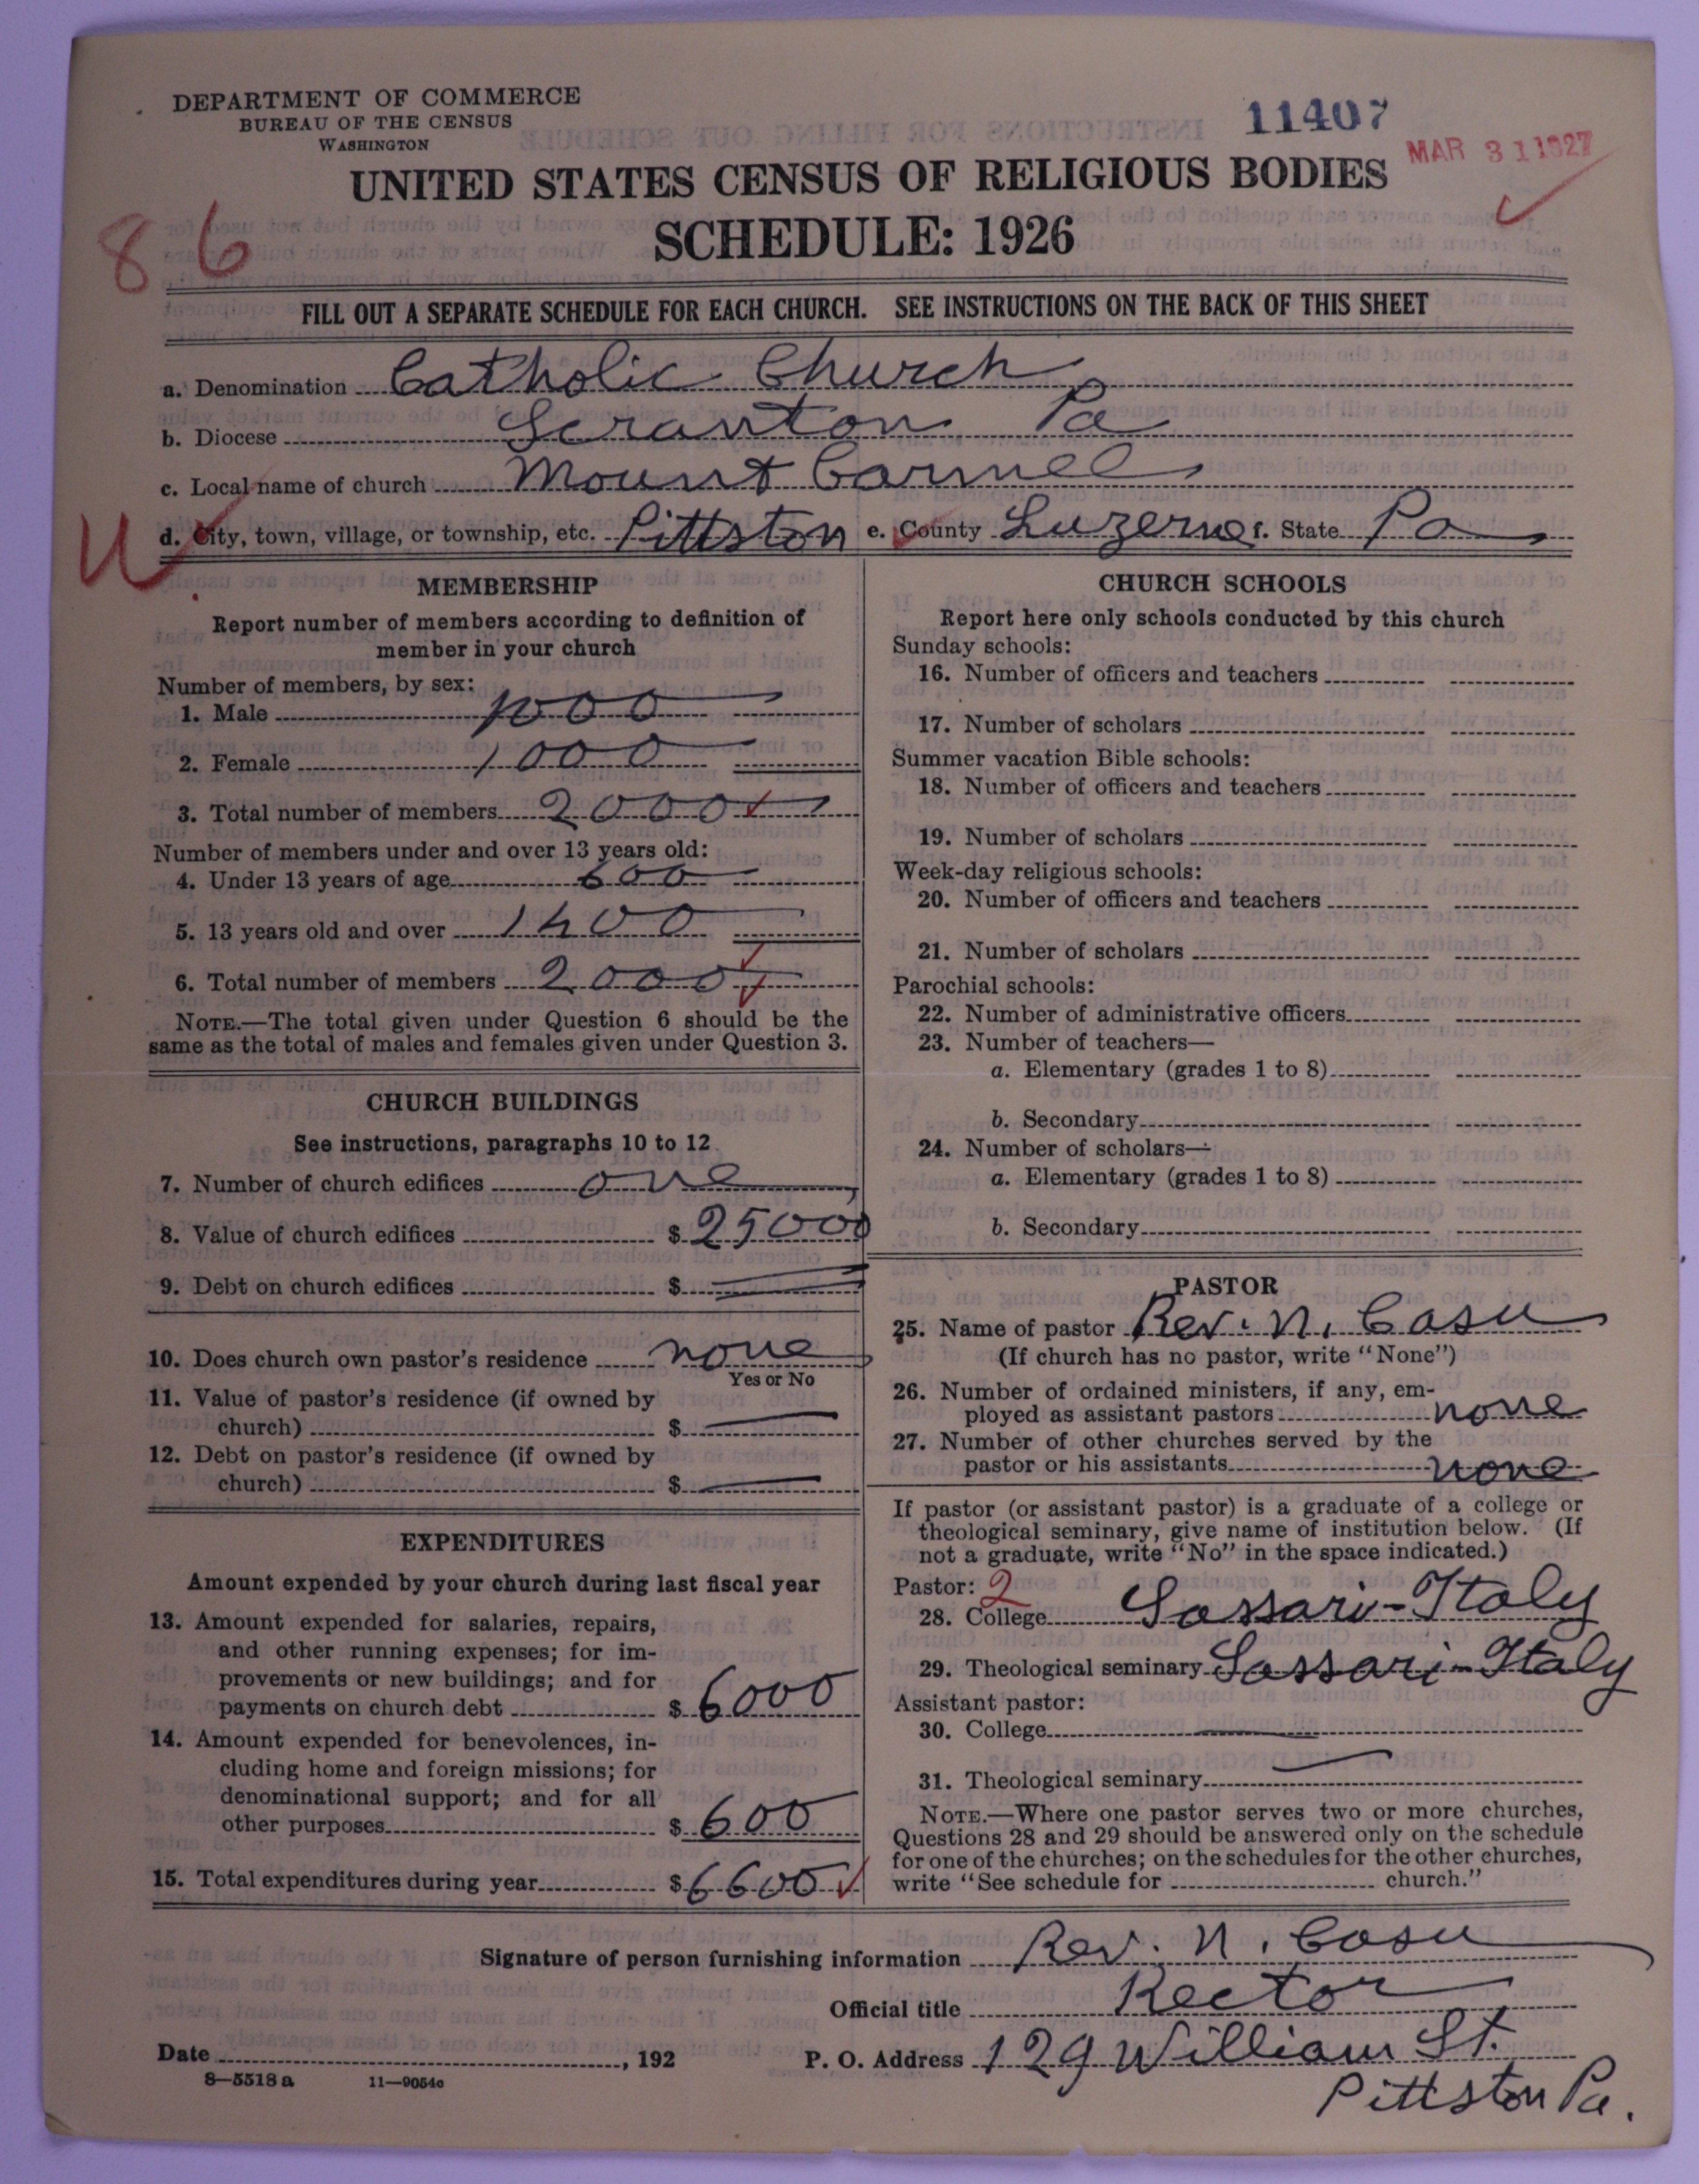 DEPARTMENT OF COMMERCE
BUREAU OF THE CENSUS
WASHINGTON
11407
MAR 31 1927
UNITED STATES CENSUS OF RELIGIOUS BODIES
SCHEDULE: 1926
86
FILL OUT A SEPARATE SCHEDULE FOR EACH CHURCH. SEE INSTRUCTIONS ON THE BACK OF THIS SHEET
a. Denomination Catholic Church
b. Diocese Scranton Pa
c. Local name of church Mount Carmel
d. City, town, village, or township, etc. Pittston e. County Luzerne f. State Pa
U
MEMBERSHIP
Report number of members according to definition of
member in your church
Number of members, by sex:
1. Male 1000
2. Female 1000
3. Total number of members 2000
Number of members under and over 13 years old:
4. Under 13 years of age 600
5. 13 years old and over 1400
6. Total number of members 2000
NOTE.—The total given under Question 6 should be the
same as the total of males and females given under Question 3.
CHURCH BUILDINGS
See instructions, paragraphs 10 to 12
7. Number of church edifices one
8. Value of church edifices $ 25000
9. Debt on church edifices $
10. Does church own pastor's residence none
Yes or No
11. Value of pastor's residence (if owned by
church) $
12. Debt on pastor's residence (if owned by
church) $
EXPENDITURES
Amount expended by your church during last fiscal year
13. Amount expended for salaries, repairs,
and other running expenses; for im-
provements or new buildings; and for
payments on church debt $ 6000
14. Amount expended for benevolences, in-
cluding home and foreign missions; for
denominational support; and for all
other purposes $ 600
15. Total expenditures during year $ 6600
CHURCH SCHOOLS
Report here only schools conducted by this church
Sunday schools:
16. Number of officers and teachers
17. Number of scholars
Summer vacation Bible schools:
18. Number of officers and teachers
19. Number of scholars
Week-day religious schools:
20. Number of officers and teachers
21. Number of scholars
Parochial schools:
22. Number of administrative officers
23. Number of teachers—
a. Elementary (grades 1 to 8)
b. Secondary
24. Number of scholars—
a. Elementary (grades 1 to 8)
b. Secondary
PASTOR
25. Name of pastor Rev. N. Casu
(If church has no pastor, write "None")
26. Number of ordained ministers, if any, em-
ployed as assistant pastors none
27. Number of other churches served by the
pastor or his assistants none
If pastor (or assistant pastor) is a graduate of a college or
theological seminary, give name of institution below. (If
not a graduate, write "No" in the space indicated.)
Pastor: 2
28. College Sassari-Italy
29. Theological seminary Sassari-Italy
Assistant pastor:
30. College
31. Theological seminary
NOTE.—Where one pastor serves two or more churches,
Questions 28 and 29 should be answered only on the schedule
for one of the churches; on the schedules for the other churches,
write "See schedule for church."
Signature of person furnishing information Rev. N. Casu
Official title Rector
Date , 192 P. O. Address 129 William St.
Pittston Pa.
8—5518 a 11—9054c